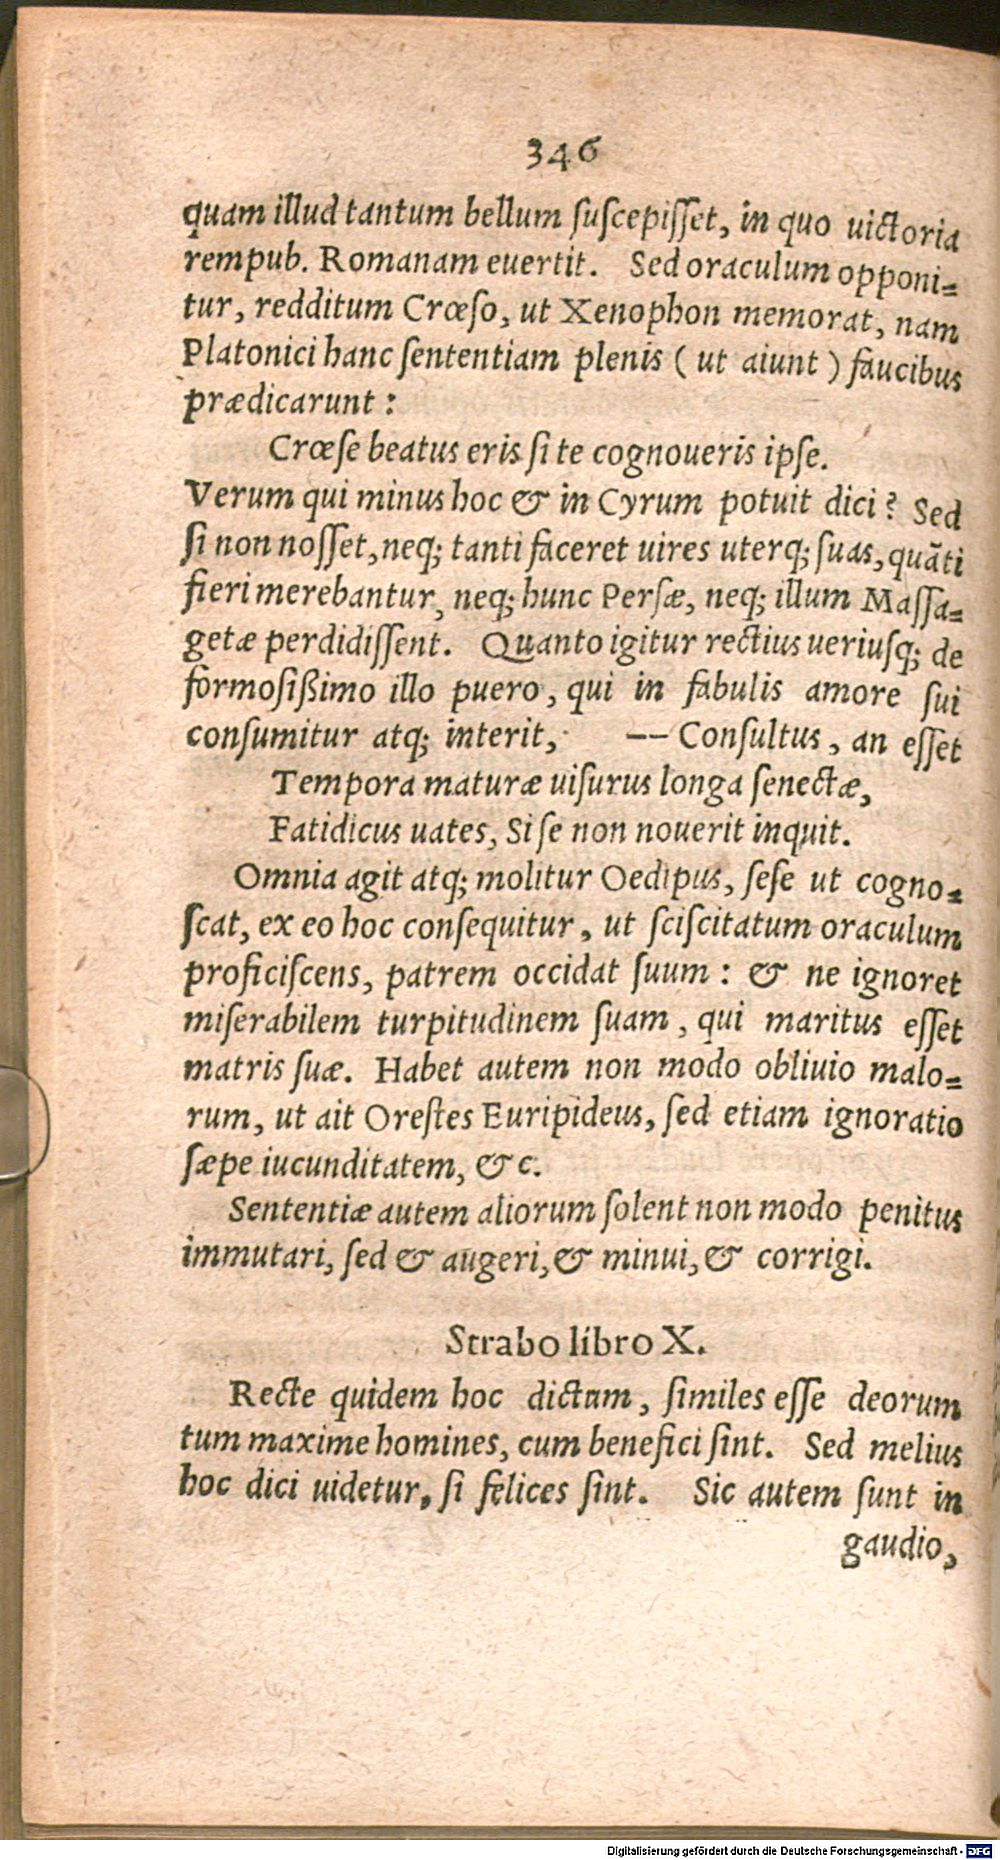 346
quam illud tantum bellum ſuſcepiſſet, in quo uictoria
rempub. Romanam euertit. Sed oraculum opponi⸗
tur, redditum Crœſo, ut Xenophon memorat, nam
Platonici hanc ſententiam plenis (ut aiunt) faucibus
prædicarunt:
Crœſe beatus eris ſi te cognoueris ipſe.
Verum qui minus hoc & in Cyrum potuit dici? Sed
ſi non noſſet, neq; tanti faceret uires uterq; ſuas, quãti
fieri merebantur, neq; hunc Perſæ, neq; illum Maſſa⸗
getæ perdidiſſent. Quanto igitur rectius ueriusq; de
formoſißimo illo puero, qui in fabulis amore ſui
conſumitur atq; interit, –– Conſultus, an eſſet
Tempora maturæ uiſurus longa ſenectæ,
Fatidicus uates, Si ſe non nouerit inquit.
Omnia agit atq; molitur Oedipus, ſeſe ut cogno⸗
ſcat, ex eo hoc conſequitur, ut ſciſcitatum oraculum
proficiſcens, patrem occidat ſuum: & ne ignoret
miſerabilem turpitudinem ſuam, qui maritus eſſet
matris ſuæ. Habet autem non modo obliuio malo⸗
rum, ut ait Oreſtes Euripideus, ſed etiam ignoratio
ſæpe iucunditatem, &c.
Sententiæ autem aliorum ſolent non modo penitus
immutari, ſed & augeri, & minui, & corrigi.
Strabo libro X.
Recte quidem hoc dictum, ſimiles eſſe deorum
tum maxime homines, cum benefici ſint. Sed melius
hoc dici uidetur, ſi felices ſint. Sic autem ſunt in
gaudio,
Digitalisierung gefördert durch die Deutsche Forschungsgemeinschaft - DFG